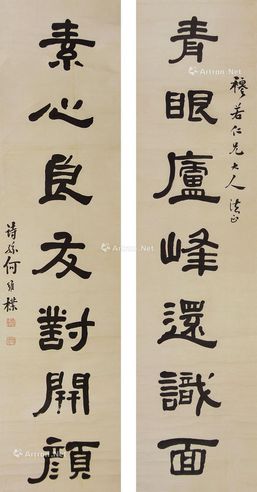 穆若仁兄大人法正
青眼廬峰還識面
素心良友對開顏
詩孫何維樸
Artron.Net
Artron.Net
Artron.Net
Artron.Net